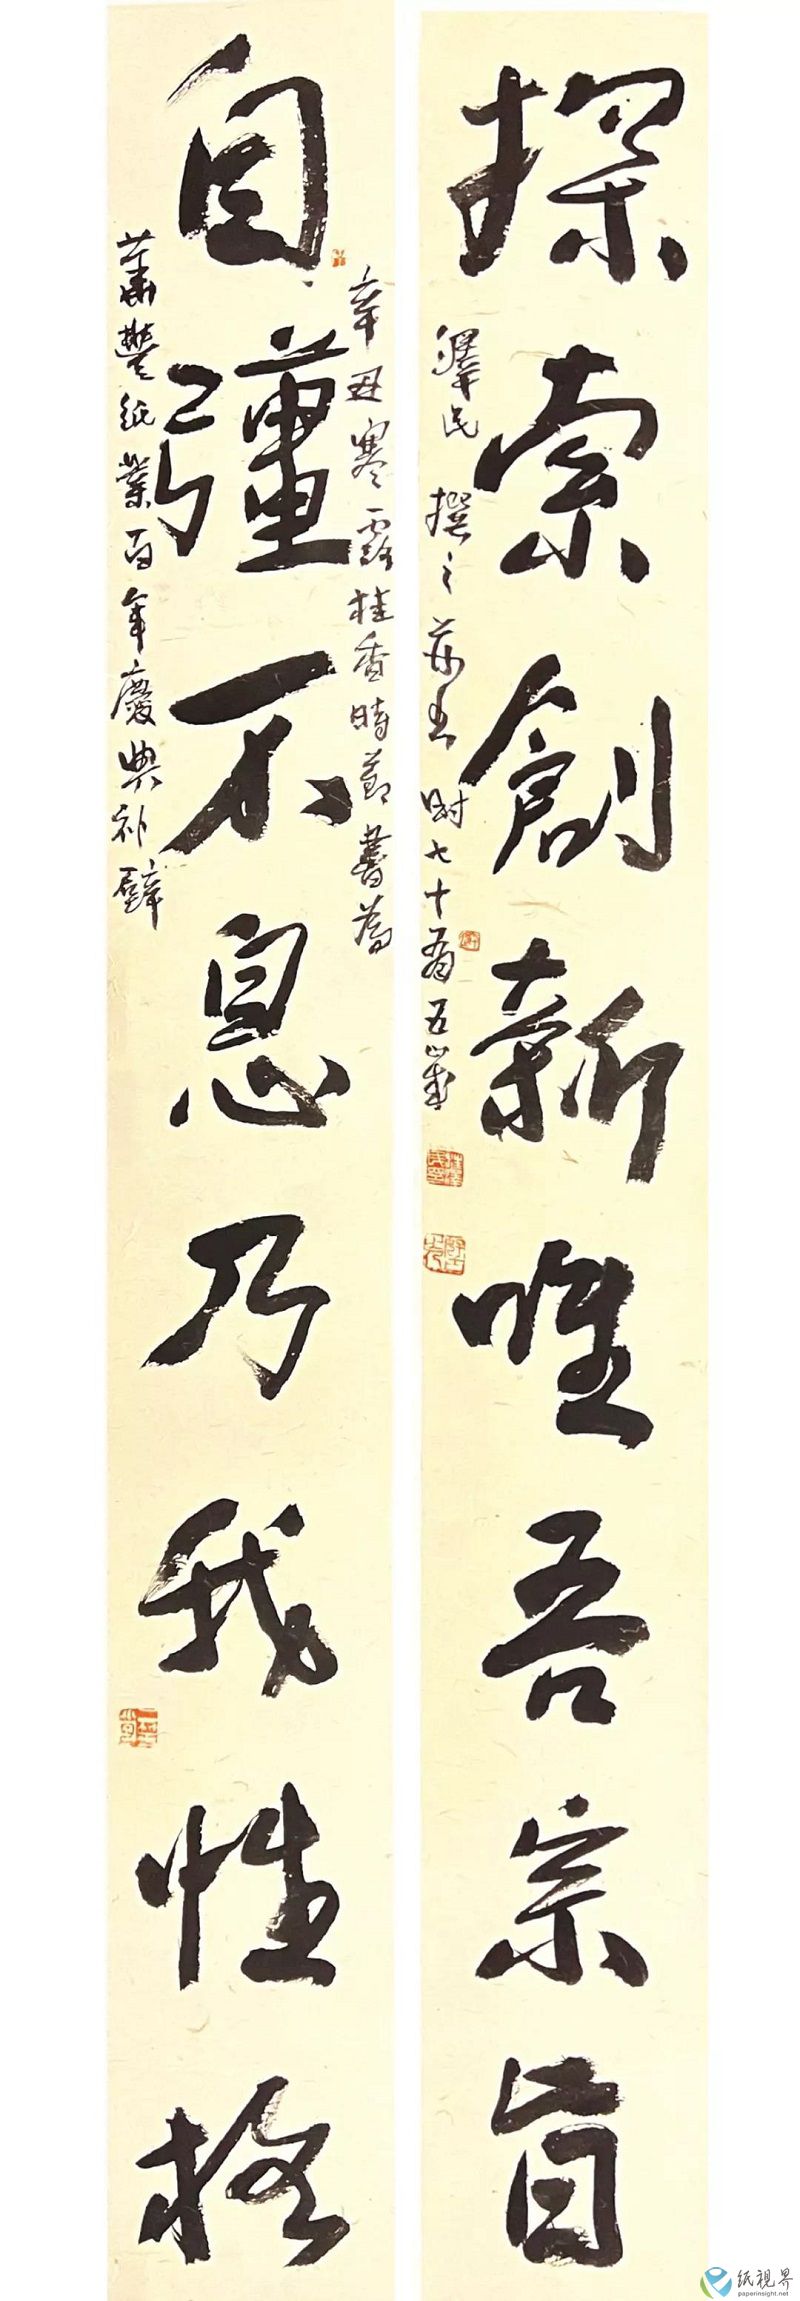 探索創新唯吾宗旨
民撰之并书时七十有五岁
辛丑寒露桂香時節書為
自彊不息乃我性格
華豐紙業百年慶典补壁
纸视界
paperinsight.net